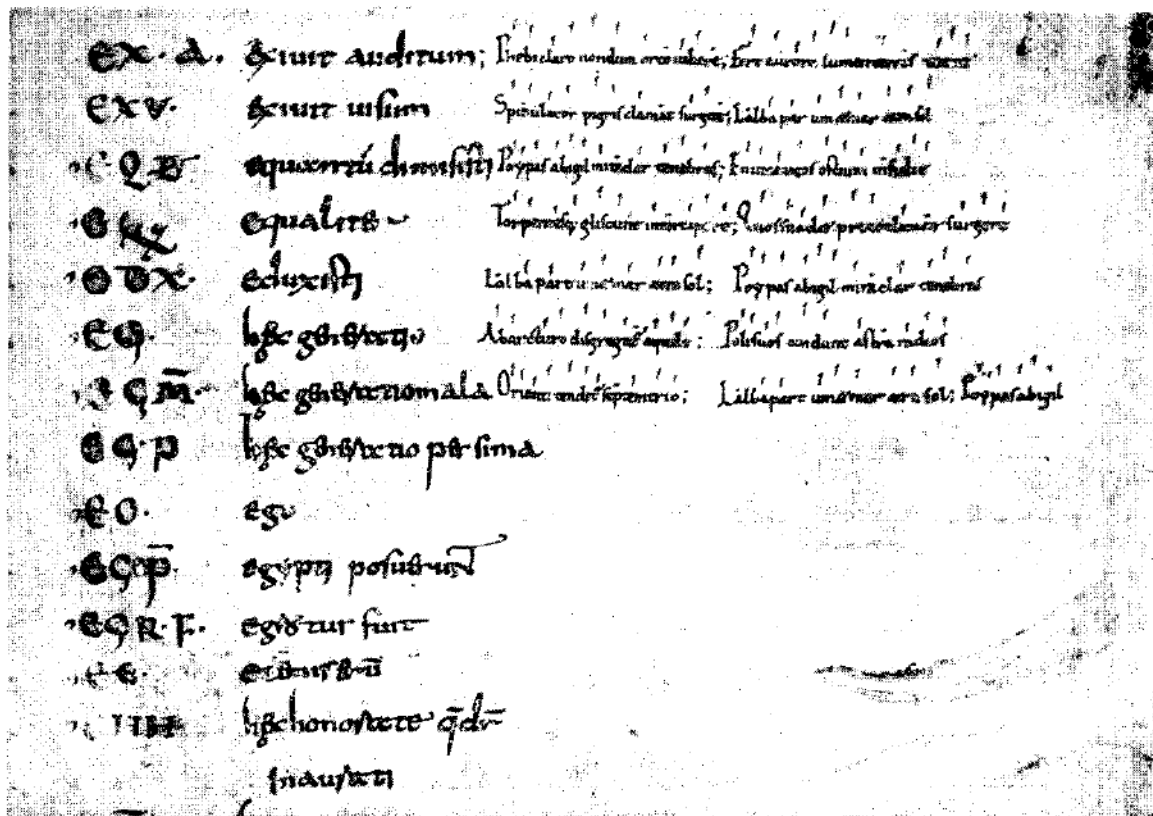 EX·A· Exiuit auditum; Phebi claro nondum orto iubare; Fert aurora lumen terris tenue
EXV· Exiuit uisum Spiculator pigris clamat surgite; L alba par umet mar atra sol
EQD equantū dimisisti Poypas abigil miraclar tenebras; En incautos ostium insidie
equalite Torpentesq; gliscunt intercipere; Quos suadet preco clamat surgere
EDX· eduxisti L alba part umet mar atra sol; Poypas abigil miraclar tenebras
EG· hęc generatio Ab arcturo disgregatr̄ aquilo; Poli suos condunt astra radios
EGM̄· hęc generatio mala Orienti tendit̄ septentrio; L alba part umet mar atra sol; Poypas abigil
EG·P hęc generatio pessima
EO· ego
EGP̄· egypti posuerunt
EGR·F· egrotur fuit
E·E·
hęc honostate q̄dr̄
Inaurati